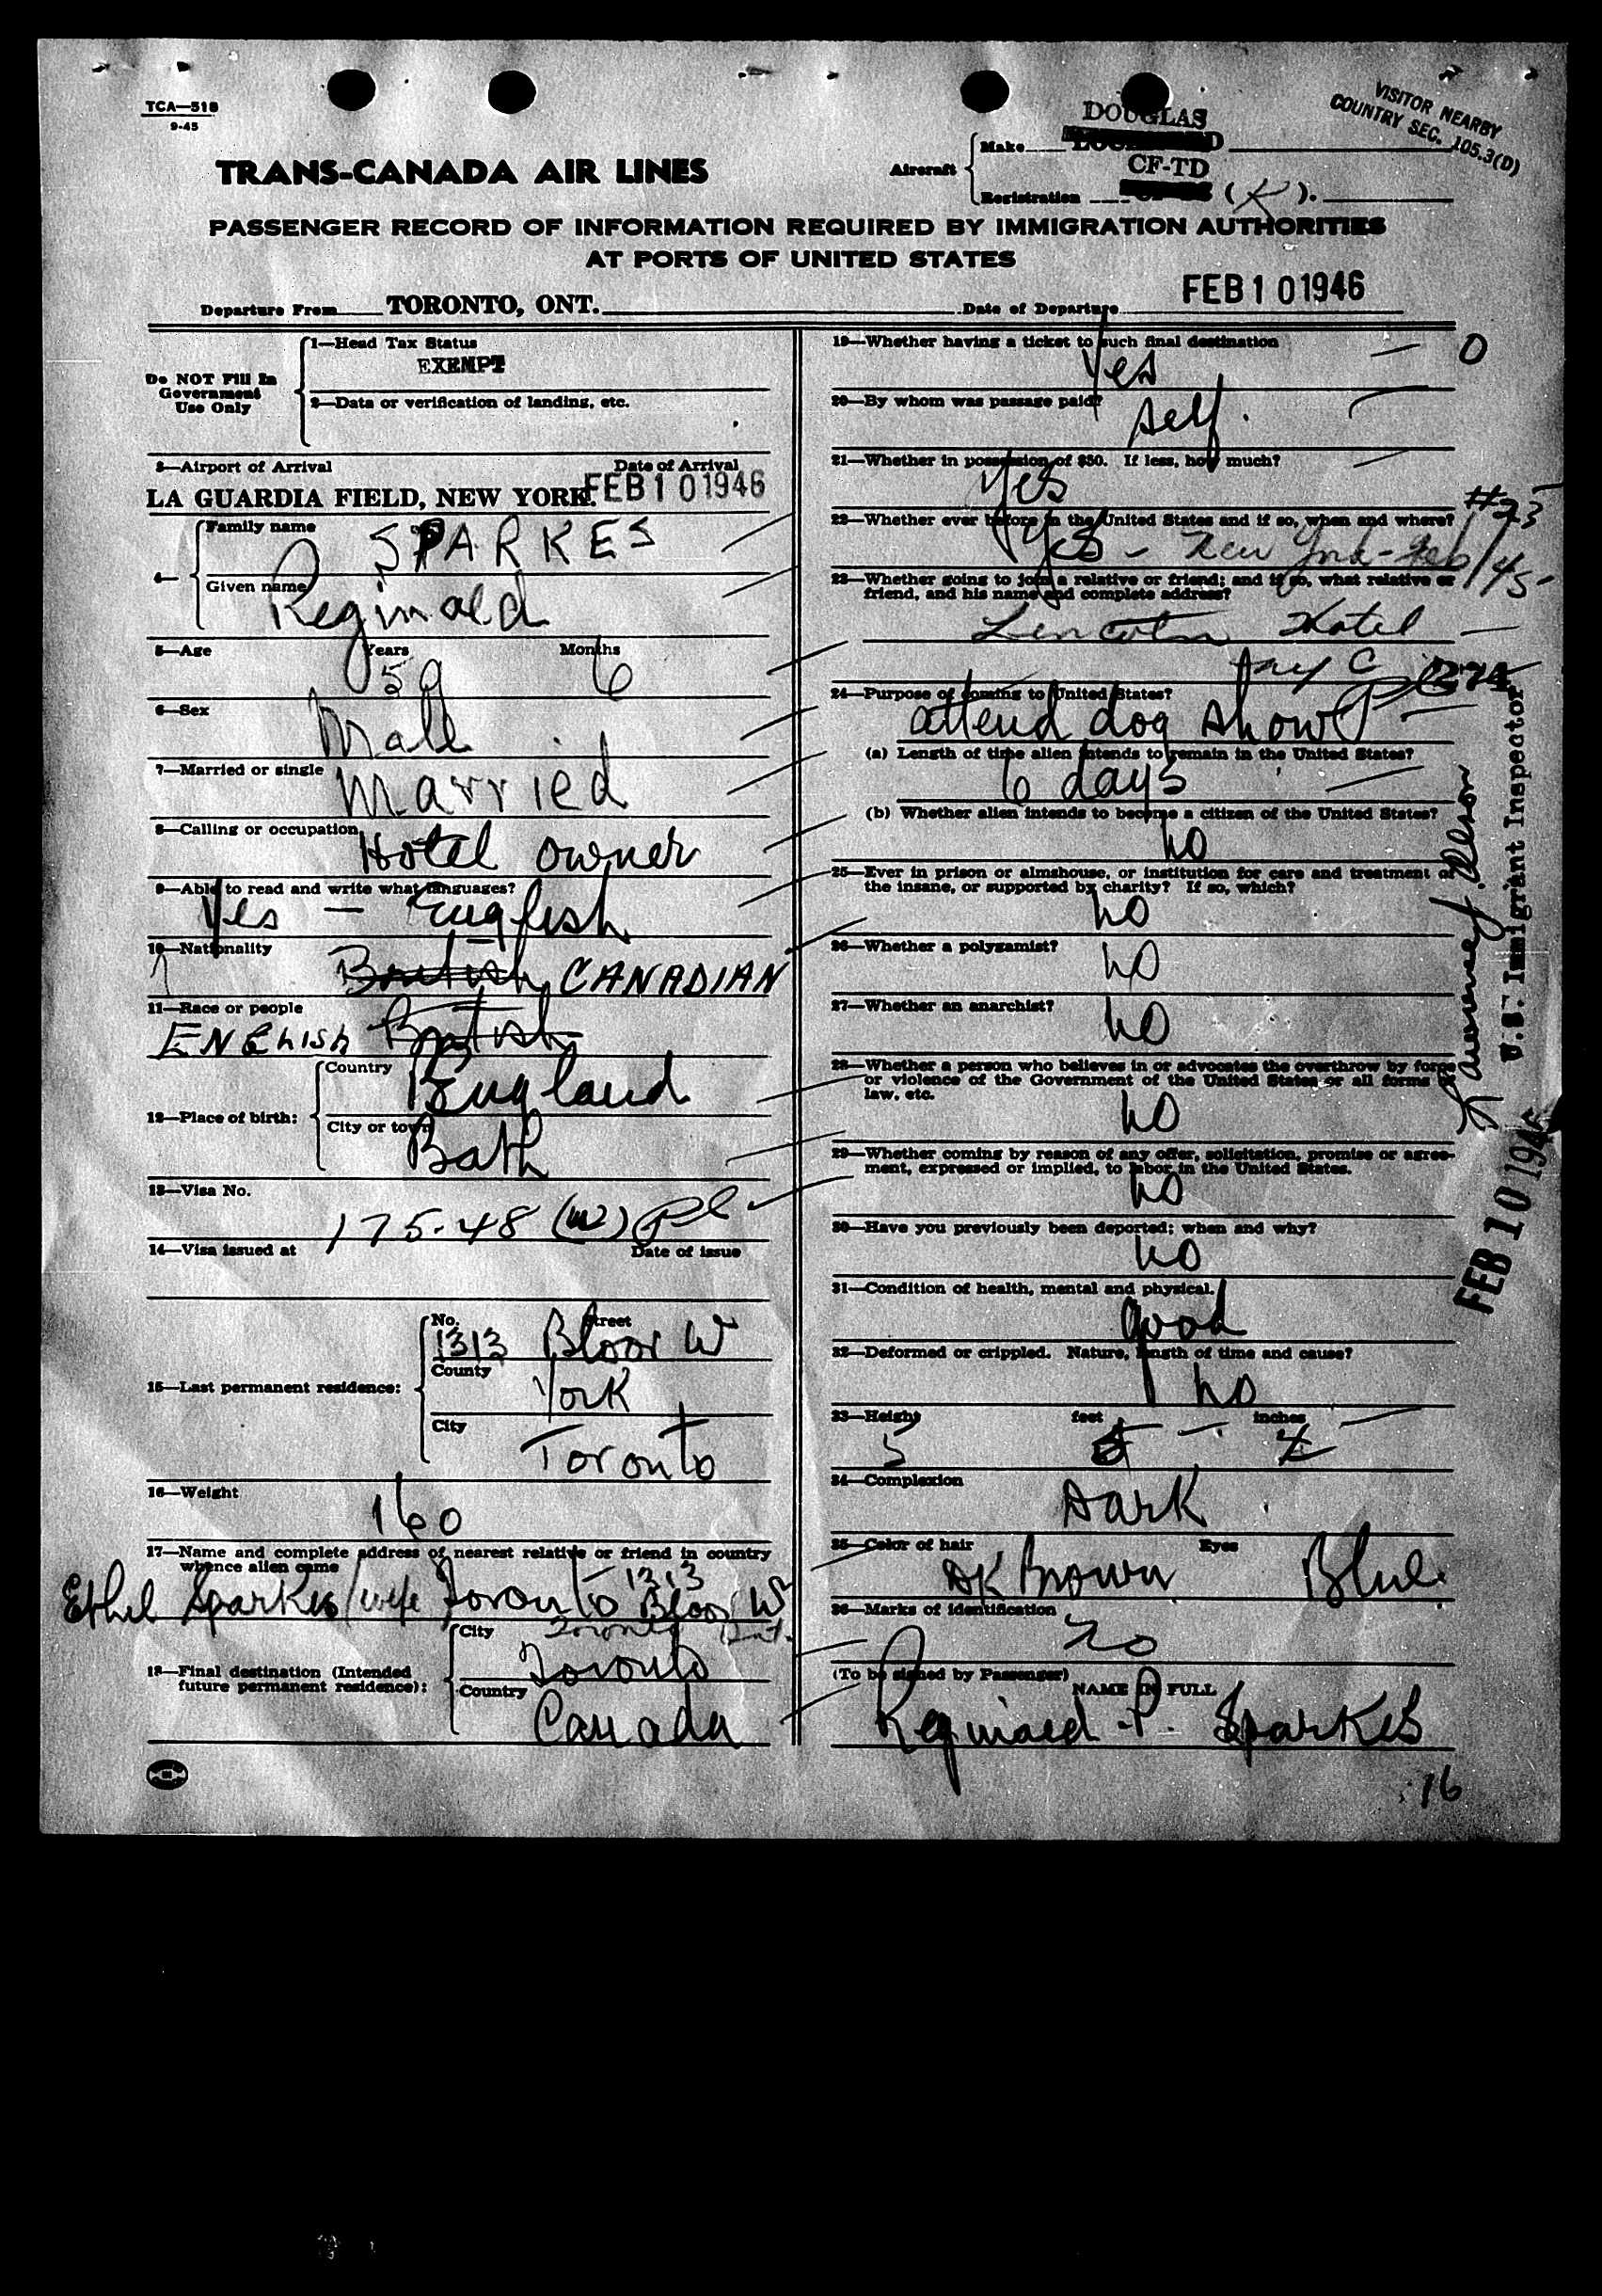 TCA—518
9-45
VISITOR NEARBY
COUNTRY SEC. 105.3(D)
TRANS-CANADA AIR LINES
Aircraft
Make
DOUGLAS
Registration
CF-TD (K).
PASSENGER RECORD OF INFORMATION REQUIRED BY IMMIGRATION AUTHORITIES
AT PORTS OF UNITED STATES
Departure From TORONTO, ONT. Date of Departure FEB 10 1946
Do NOT Fill In
Government
Use Only
1—Head Tax Status
EXEMPT
2—Data or verification of landing, etc.
3—Airport of Arrival Date of Arrival
LA GUARDIA FIELD, NEW YORK. FEB 10 1946
4—
Family name SPARKES
Given name Reginald
5—Age Years Months
59 6
6—Sex
Male
7—Married or single
Married
8—Calling or occupation
Hotel owner
9—Able to read and write what languages?
Yes — English
10—Nationality
British CANADIAN
11—Race or people
ENGLISH British
12—Place of birth:
Country
England
City or town
Bath
13—Visa No.
175-48
14—Visa issued at Date of issue
15—Last permanent residence:
No. Street
1313 Bloor W
County
York
City
Toronto
16—Weight
160
17—Name and complete address of nearest relative or friend in country
whence alien came
Ethel Sparkes/wife Toronto - 1313 Bloor W
Toronto Ont.
18—Final destination (Intended
future permanent residence):
City
Toronto
Country
Canada
19—Whether having a ticket to such final destination
Yes
0
20—By whom was passage paid?
Self.
21—Whether in possession of $50. If less, how much?
Yes
#23
22—Whether ever before in the United States and if so, when and where?
Yes - New York - Feb/45
23—Whether going to join a relative or friend; and if so, what relative or
friend, and his name and complete address?
Lincoln Hotel
NYC
24—Purpose of coming to United States?
attend dog show
(a) Length of time alien intends to remain in the United States?
6 days
(b) Whether alien intends to become a citizen of the United States?
no
25—Ever in prison or almshouse, or institution for care and treatment of
the insane, or supported by charity? If so, which?
no
26—Whether a polygamist?
no
27—Whether an anarchist?
no
28—Whether a person who believes in or advocates the overthrow by force
or violence of the Government of the United States or all forms of
law, etc.
no
29—Whether coming by reason of any offer, solicitation, promise or agree-
ment, expressed or implied, to labor in the United States.
no
30—Have you previously been deported; when and why?
no
31—Condition of health, mental and physical.
Good
32—Deformed or crippled. Nature, length of time and cause?
no
33—Height feet inches
5
34—Complexion
Dark
35—Color of hair Eyes
DK Brown Blue
36—Marks of identification
no
(To be signed by Passenger)
NAME IN FULL
Reginald P. Sparkes
16
U.S. Immigrant Inspector
FEB 10 1946